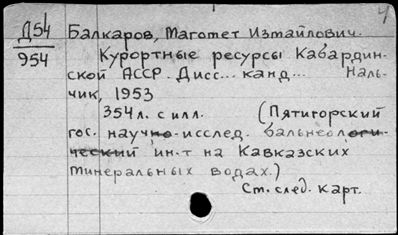 4
Д54
954
Балкаров, Магомет Измайлович.
Курортные ресурсы Кабардин-
ской АССР. Дисс... канд... Наль-
чик, 1953
354 л. с илл. (Пятигорский
гос. научно-исслед. бальнеологи-
ческий ин-т на Кавказских
минеральных водах.)
См. след. карт.